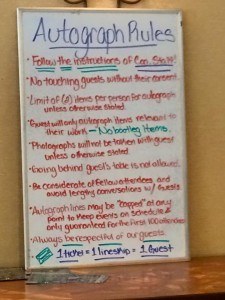 Autograph Rules
*Follow the instructions of Con Staff!
*No touching guests without their consent.
*Limit of (2) items per person for autograph
unless otherwise stated.
*Guest will only autograph items relevant to
their work - No bootleg items.
*Photographs will not be taken with guest
unless otherwise stated
*Going behind guest's table is not allowed.
*Be considerate of fellow attendees and
avoid lengthy conversations w/ Guests
*Autograph lines may be "capped" at any
point to keep events on schedule &
only guaranteed for the first 100 attendees
*Always be respectful of our guests.
1 ticket = 1 lineskip = 1 Guest